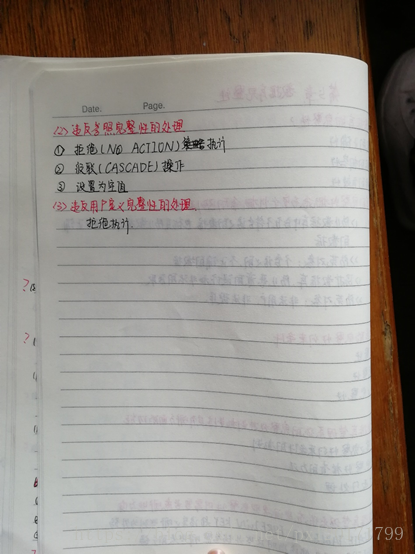 Date. Page.
(2) 违反参照完整性的处理
① 拒绝(NO ACTION) 执行
② 级联(CASCADE) 操作
③ 设置为空值
(3) 违反用户定义完整性的处理
拒绝执行
799